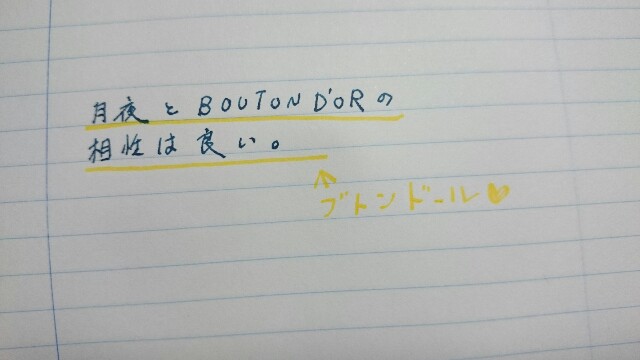 月夜とBOUTON D'ORの
相性は良い。
↑
ブトンドール♥